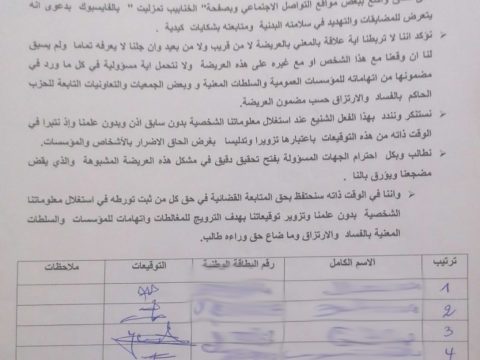 ببعض مواقع التواصل الاجتماعي وبصفحة" الخنابيب تمزليت " بالفايسبوك بدعوى انه
يتعرض للمضايقات والتهديد في سلامته البدنية ومتابعته بشكايات كيدية .
نؤكد اننا لا تربطنا اية علاقة بالمعني بالعريضة لا من قريب ولا من بعيد وان جلنا لا يعرفه تماما ولم يسبق
لنا ان وقعنا مع هذا الشخص او مع غيره على هذه العريضة ولا نتحمل اية مسؤولية في كل ما ورد في
مضمونها من اتهاماته للمؤسسات العمومية والسلطات المعنية و بعض الجمعيات والتعاونيات التابعة للحزب
الحاكم بالفساد والارتزاق حسب مضمون العريضة.
نستنكر ونندد بهذا الفعل الشنيع عند استغلال معلوماتنا الشخصية بدون سابق اذن وبدون علمنا وإذ نتبرا في
الوقت ذاته من هذه التوقيعات باعتبارها تزويرا وتدليسا بغرض الحاق الاضرار بالأشخاص .
نطالب وبكل احترام الجهات المسؤولة بفتح تحقيق دقيق في مشكل هذه العريضة المشبوهة والذي يقض
مضجعنا ويؤرق بالنا .
واننا في الوقت ذاته سنحتفظ بحق المتابعة القضائية في حق كل من ثبت تورطه في استغلال معلوماتنا
الشخصية بدون علمنا وتزوير توقيعاتنا بهدف الترويج للمغالطات واتهامات للمؤسسات والسلطات
المعنية بالفساد والارتزاق وما ضاع حق وراءه طالب.
ترتيب الاسم الكامل رقم البطاقة الوطنية التوقيعات ملاحظات
1
2
3
4